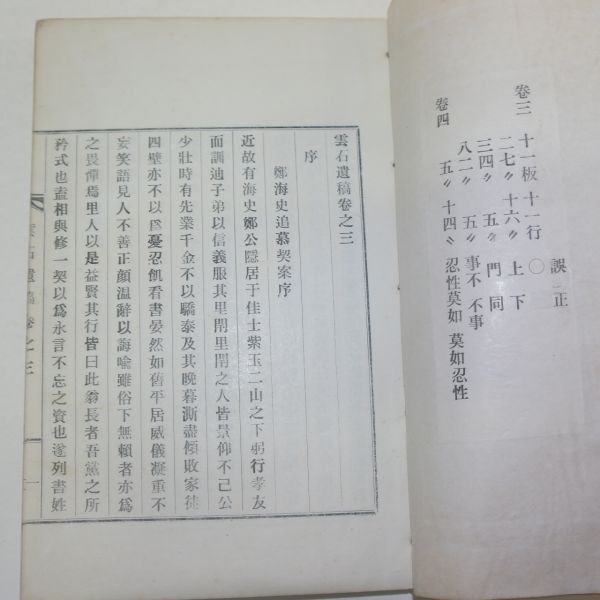 誤 正
卷三 十一板 十一行 〇
二七〃 十六〃 上 下
三四〃 五〃 門 同
八二〃 五〃 事不 不事
卷四 五〃 十四〃 忍性莫如 莫如忍性
雲石遺稿卷之三
序
鄭海史追慕契案序
近故有海史鄭公隱居于佳士紫玉二山之下躬行孝友
而訓迪子弟以信義服其里閈里閈之人皆景仰不已公
少壯時有先業千金不以驕泰及其晩暮澌盡傾敗家徒
四壁亦不以爲憂忍飢看書晏然如舊平居威儀凝重不
妄笑語見人不善正顔溫辭以誨喩雖俗下無賴者亦爲
之畏憚焉里人以是益賢其行皆曰此翁長者吾黨之所
矜式也盍相與修一契以爲永言不忘之資也遂列書姓
雲石遺稿卷之三
一